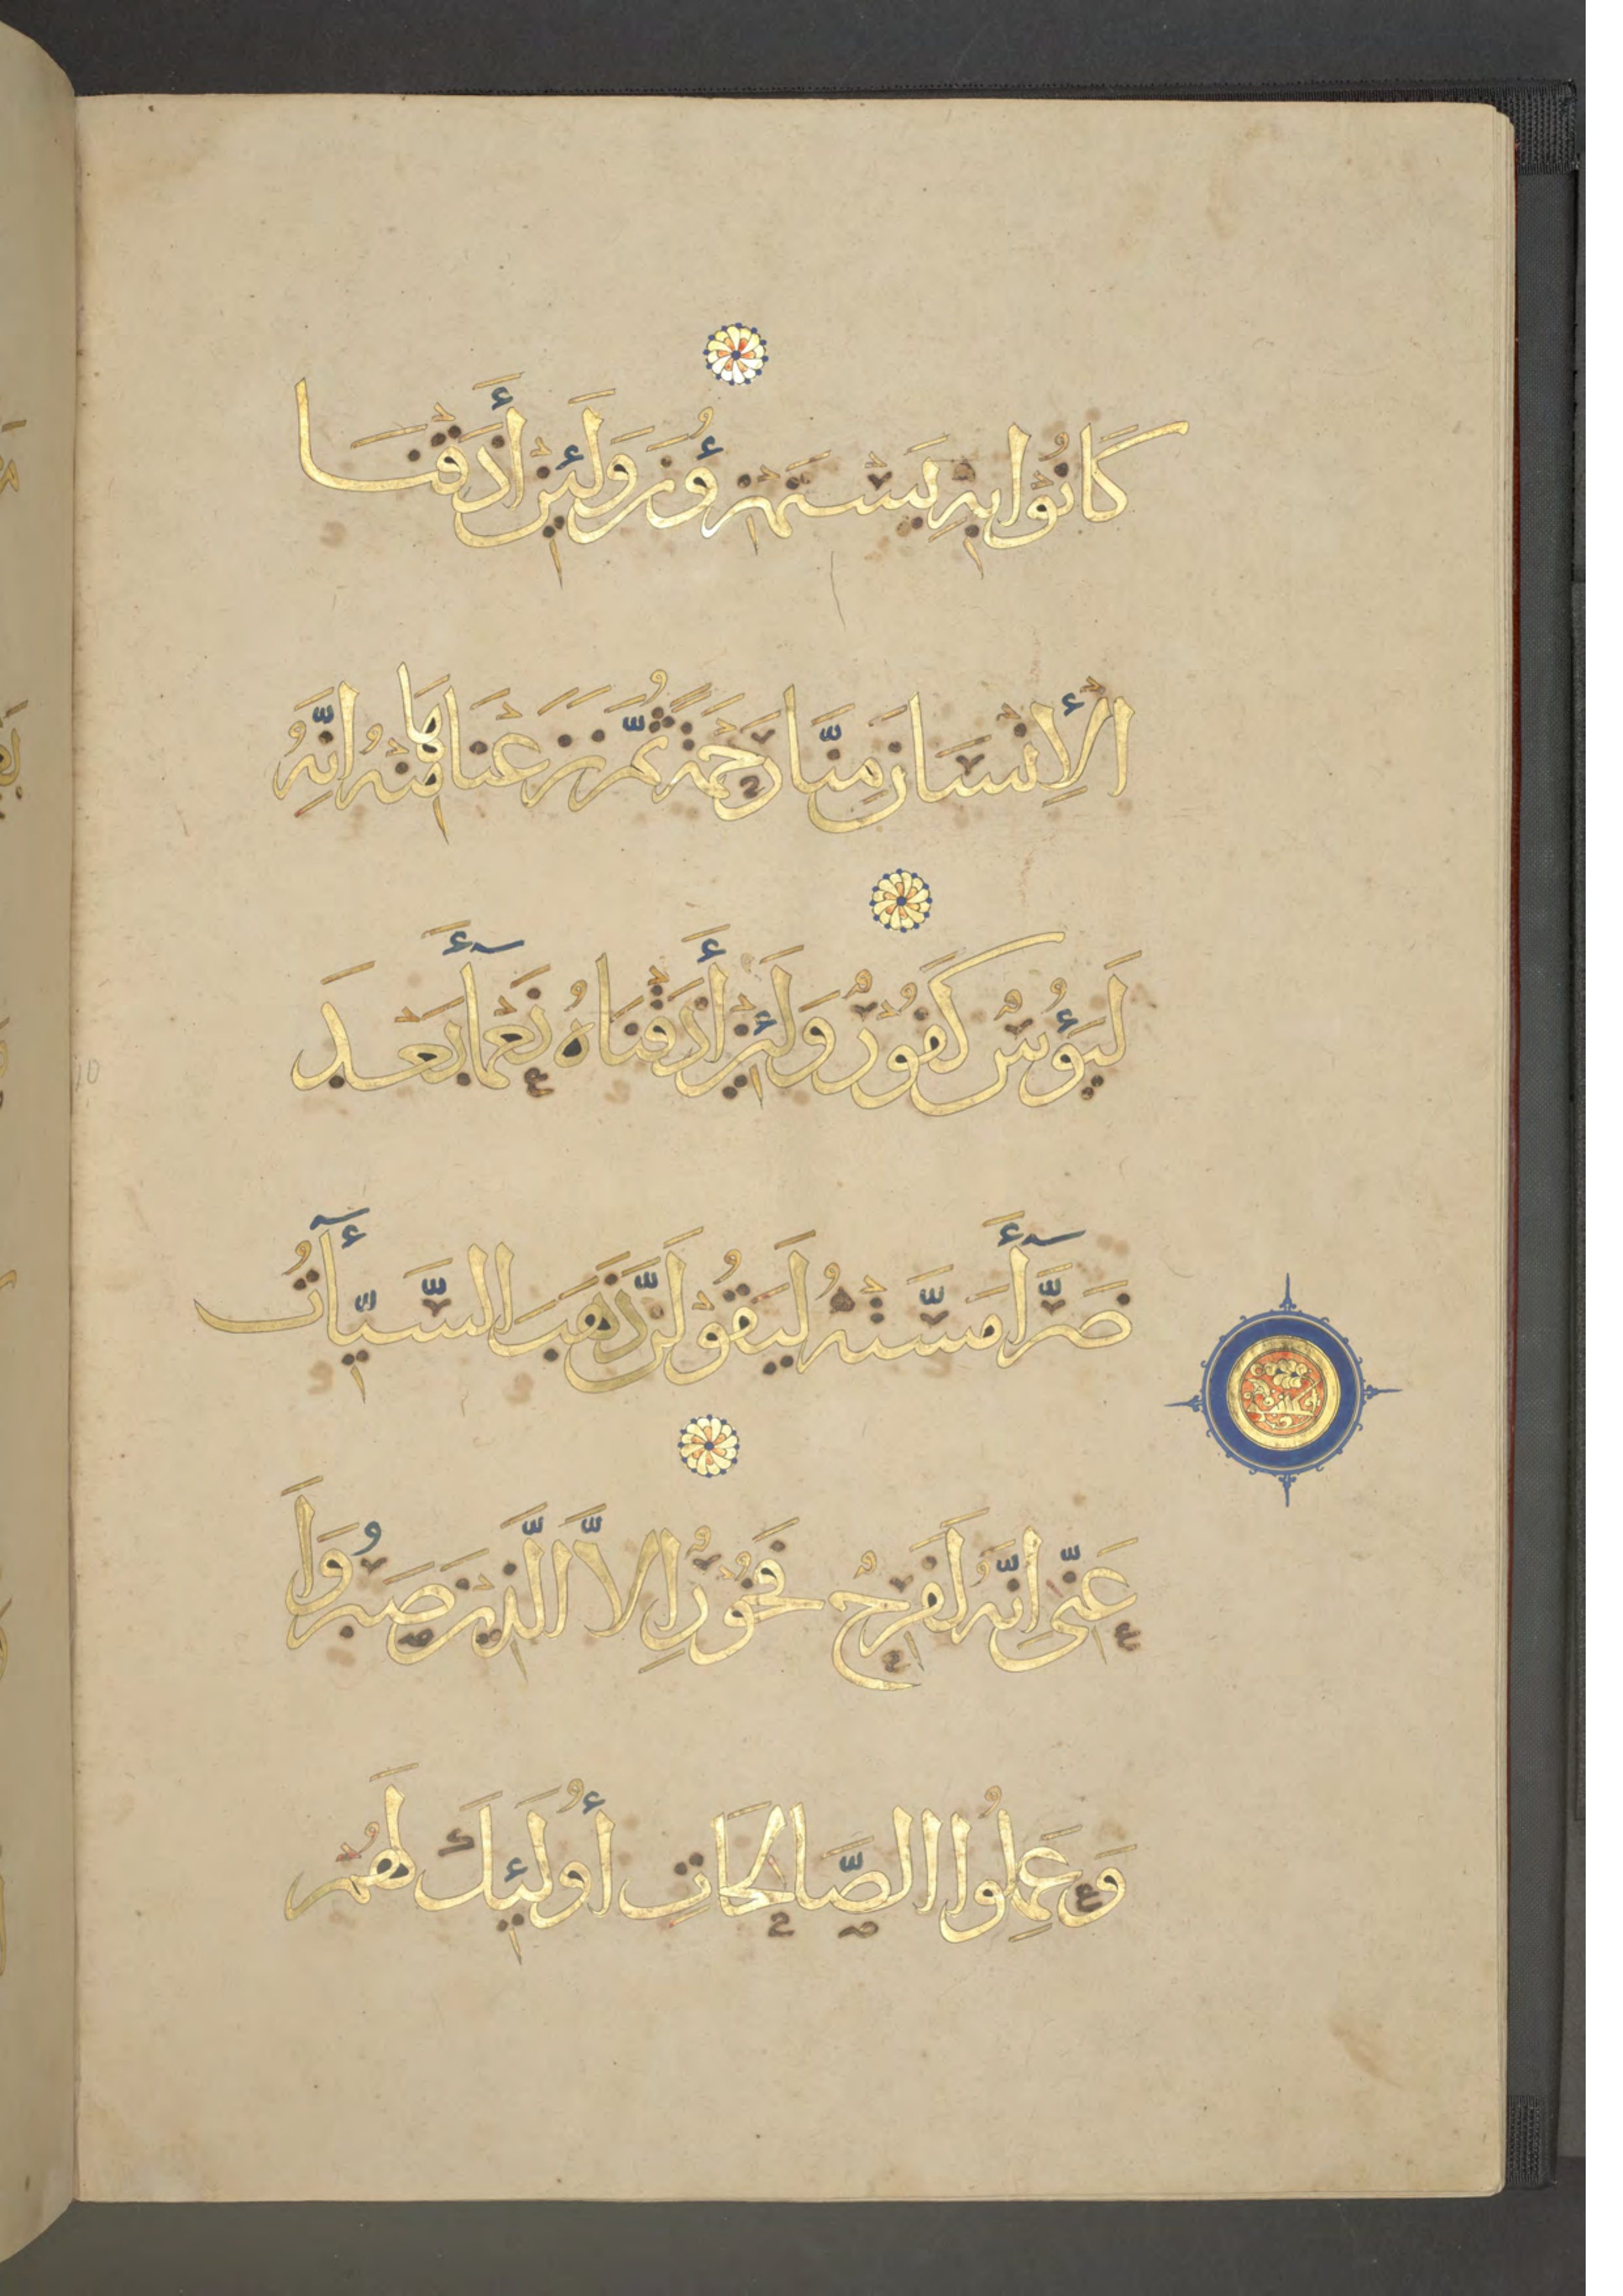 كَانُوا بِهِ يَسْتَهْزِؤُنَ وَلَئِنْ أَذَقْنَا
الْإِنْسَانَ مِنَّا رَحْمَةً ثُمَّ نَزَعْنَاهَا مِنْهُ اِنَّهُ
لَيَؤُسٌ كَفُورٌ وَلَئِنْ أَذَقْنَاهُ نَعْمَآءَ بَعْدَ
ضَرَّآءَ مَسَّتْهُ لَيَقُولَنَّ ذَهَبَ السَّيِّـَٔاتُ
عَنِّي اِنَّهُ لَفَرِحٌ فَخُورٌ اِلاَّ الَّذِينَ صَبَرُوا
وَعَمِلُوا الصَّالِحَاتِ أُولَئِكَ لَهُمْ